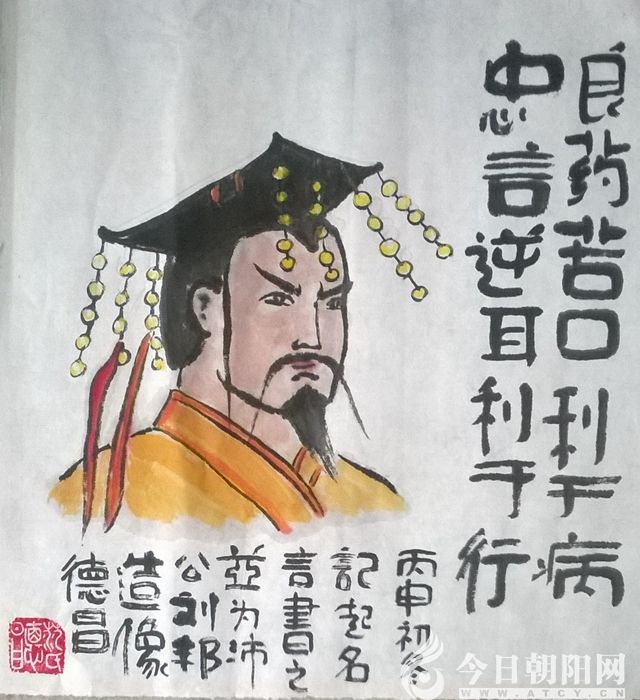 良药苦口利于病
忠言逆耳利于行
丙申初冬
記起名
言書之
並为沛
公刘邦
造像
德昌
今日朝阳网
WWW.ATCY.CN